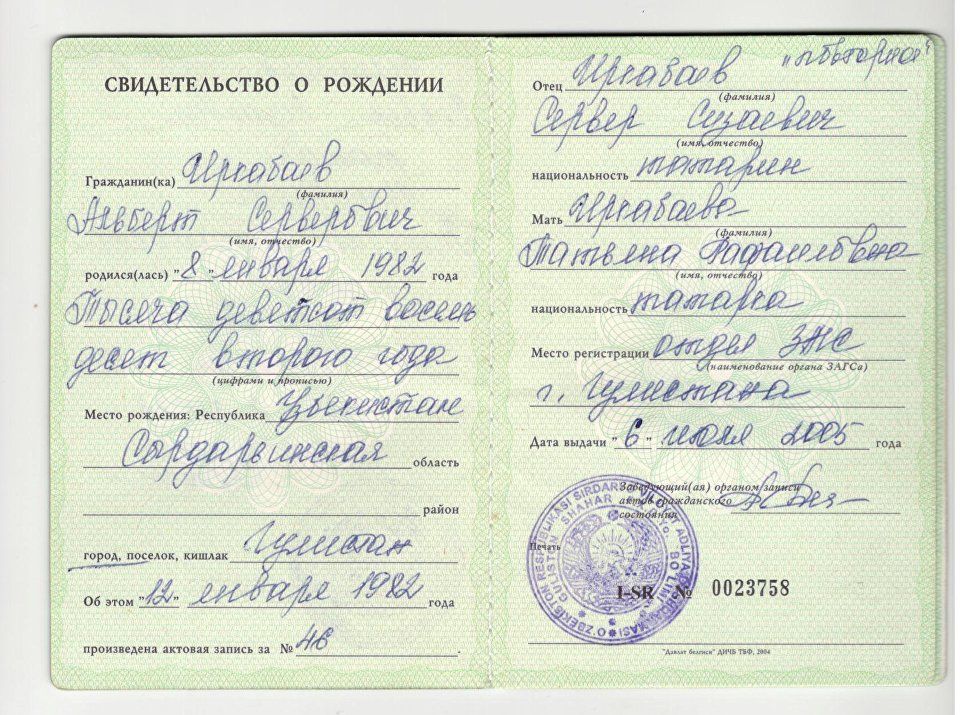 СВИДЕТЕЛЬСТВО О РОЖДЕНИИ
Гражданин(ка) Иркабаев
(фамилия)
Альберт Сервербвич
(имя, отчество)
родился(лась) "8" января 1982 года
Тысяча девятсот восемь
десят второго года
(цифрами и прописью)
Место рождения: Республика Узбекистан
Сырдарьинская область
район
город, поселок, кишлак Гулистан
Об этом "12" января 1982 года
произведена актовая запись за № 46.
"повторное"
Отец Иркабаев
(фамилия)
Сервер Сизаевич
(имя, отчество)
национальность татарин
Мать Иркабаева
(фамилия)
Татьяна Рафаиловна
(имя, отчество)
национальность татарка
Место регистрации отдел ЗАГС
(наименование органа ЗАГСа)
г. Гулистана
Дата выдачи "6" июля 2005 года
Заведующий(ая) органом записи
актов гражданского
состояния
Печать
I-SR № 0023758
"Давлат белгиси" ДИЧБ ТБФ, 2004